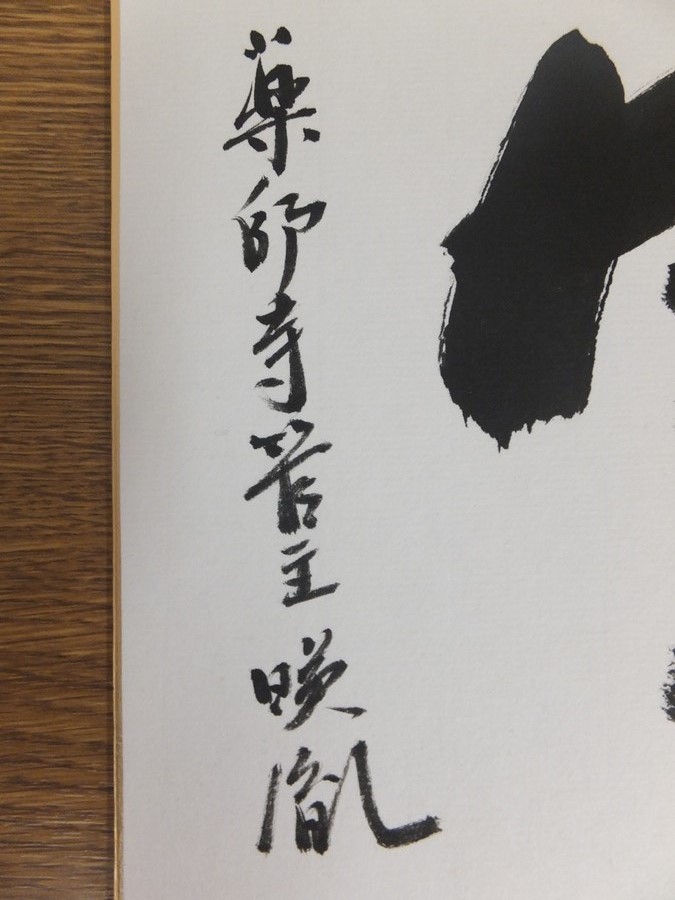 薬師寺管主 暎胤